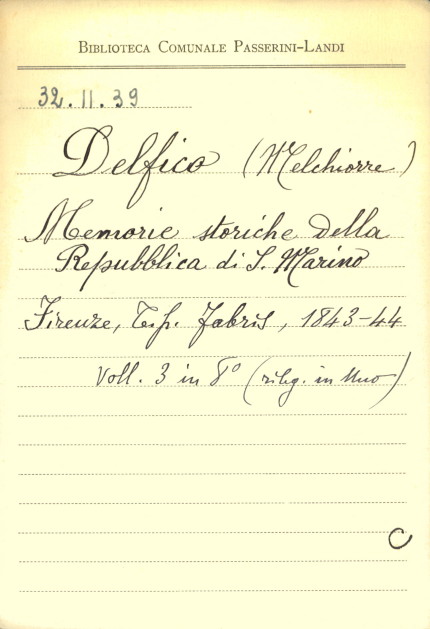 Biblioteca Comunale Passerini-Landi
32.11.39
Delfico (Melchiorre)
Memorie storiche della
Repubblica di S. Marino
Firenze, Tip. Fabris, 1843-44
Voll. 3 in 8º (rileg. in uno)
C